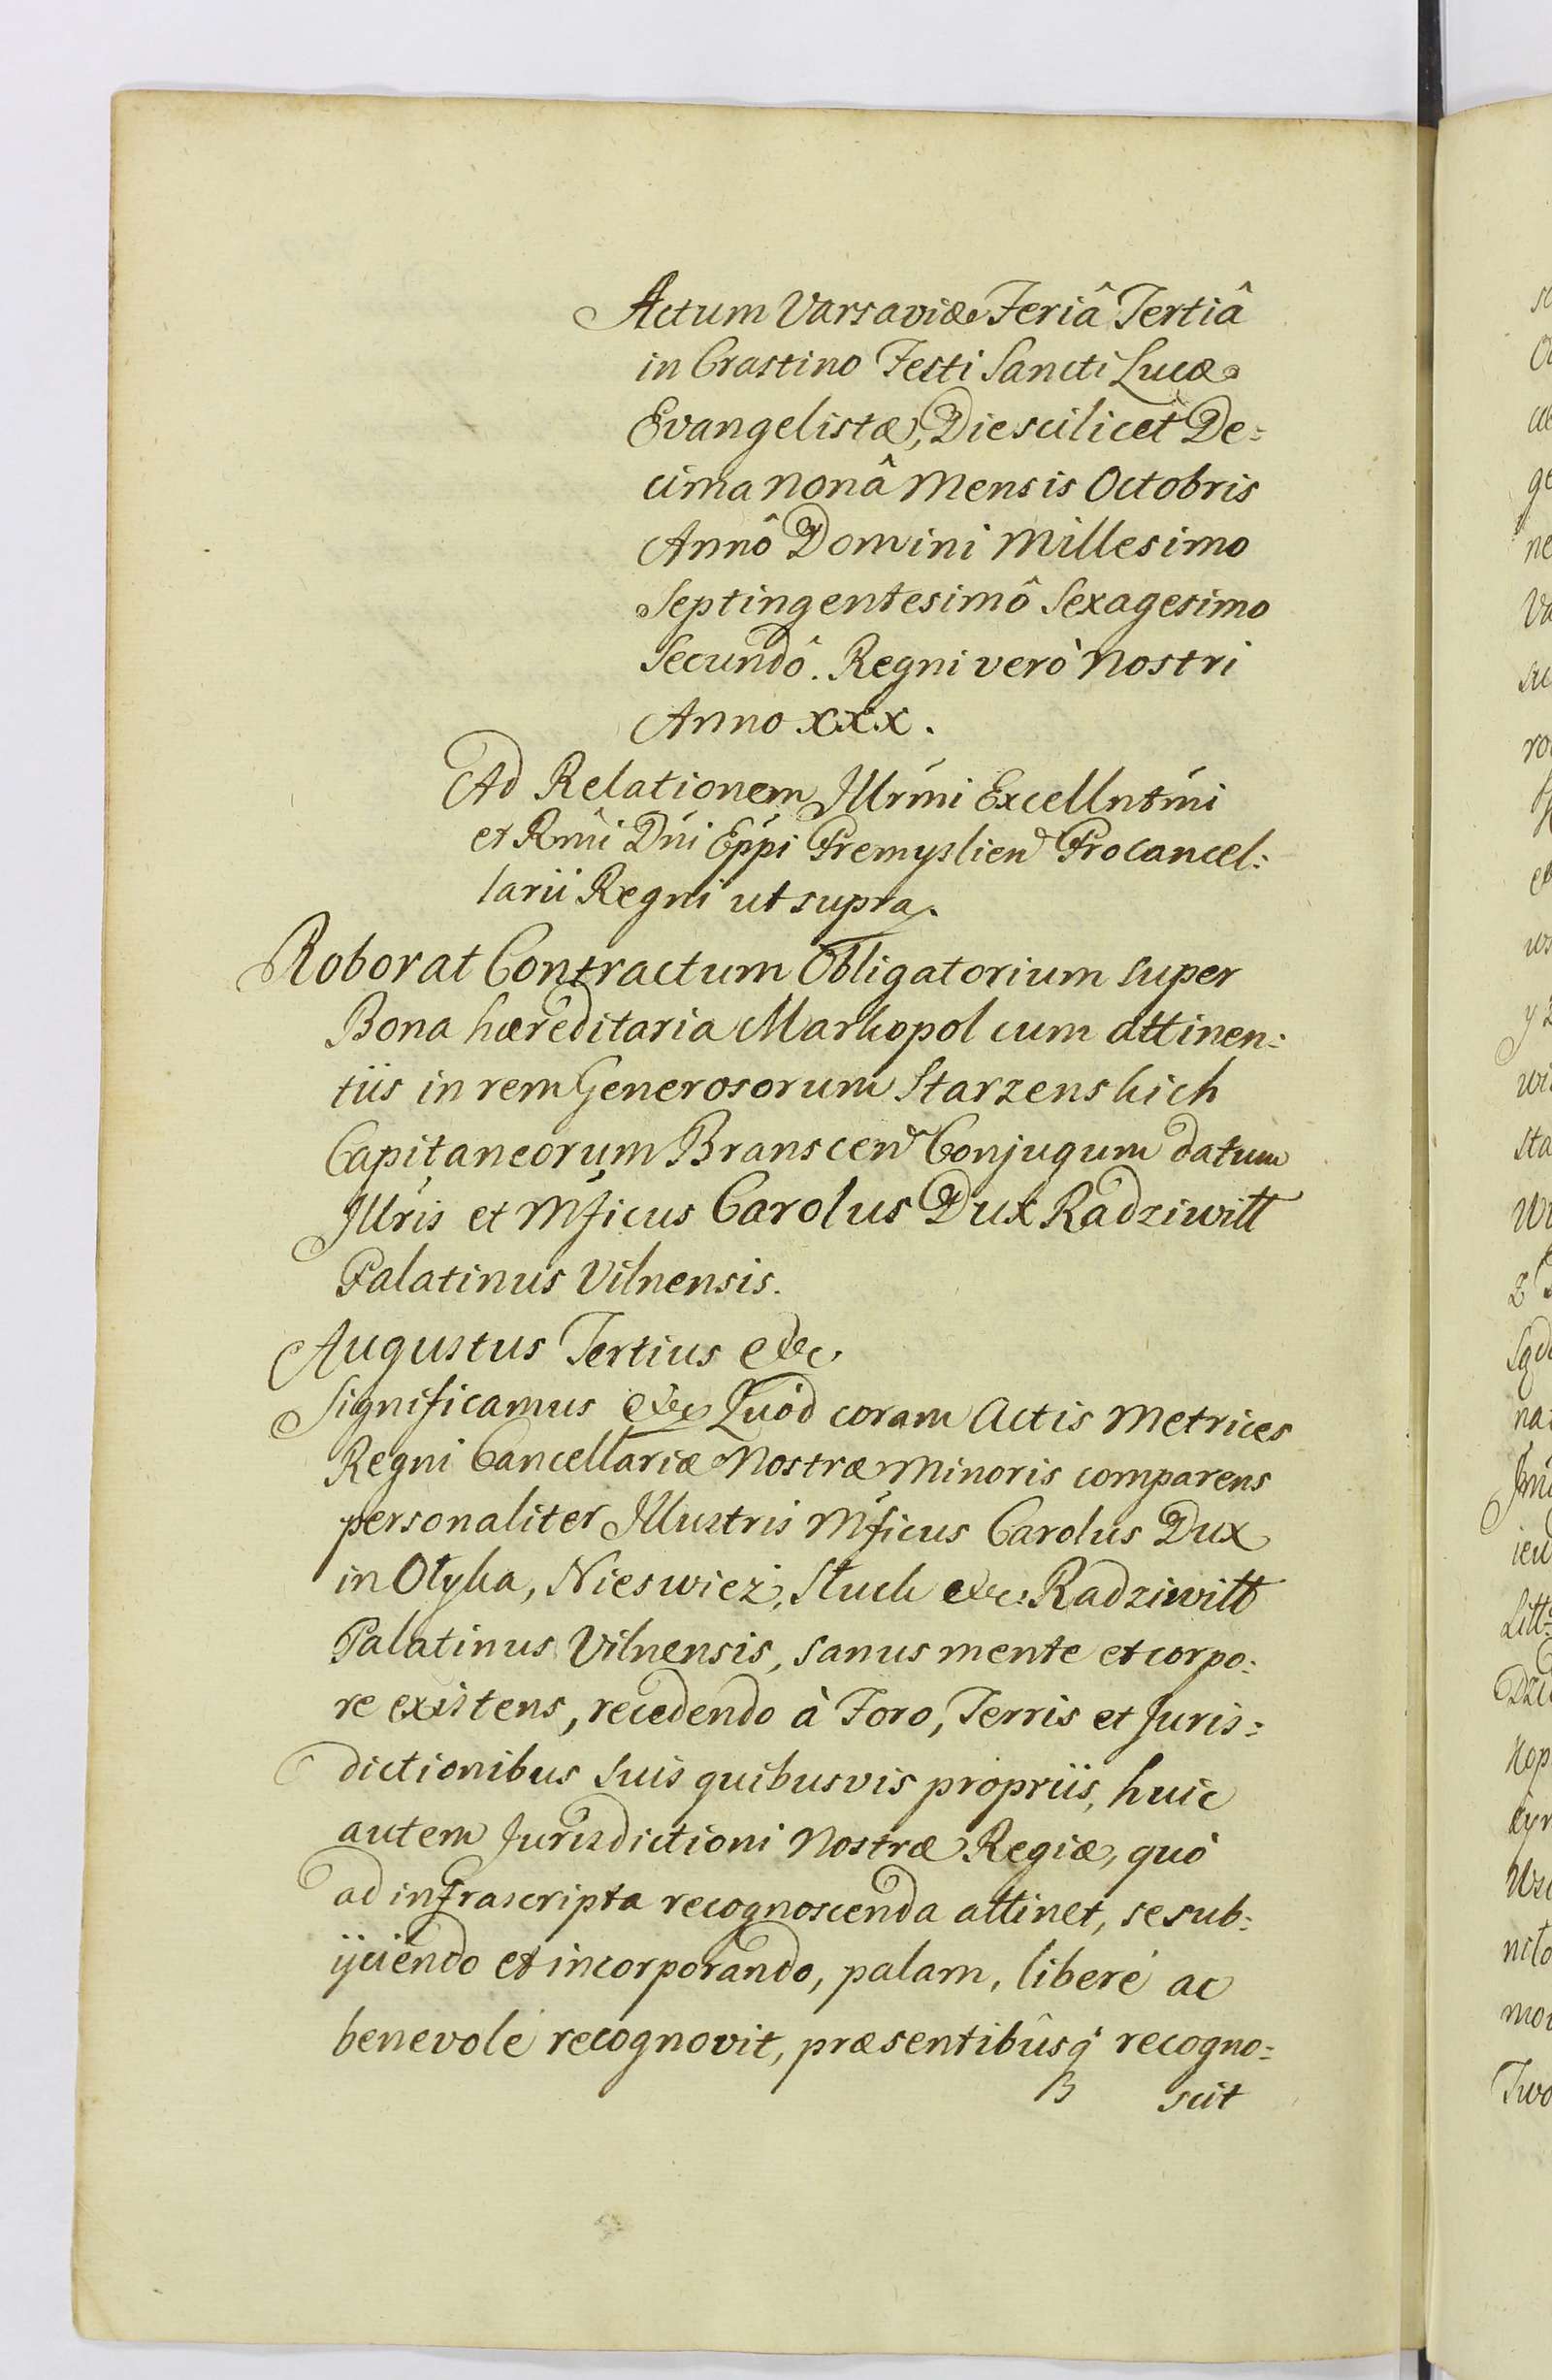 Actum Varsaviæ Feriâ Tertiâ
in Crastino Festi Sancti Lucæ
Evangelistæ, Die scilicet De=
cima nonâ Mensis Octobris
Annô Domini Millesimo
Septingentesimô Sexagesimo
Secundô. Regni verò Nostri
Anno XXX.
Ad Relationem Illrmi Excellntmi
et Rmi Dni Eppi Premyslien Procancel:
larii Regni ut supra.
Roborat Contractum Obligatorium super
Bona hæreditaria Markopol cum attinen:
tiis in rem Generosorum Starzenskich
Capitaneorum Branscen Conjugum datum
Illris et Mficus Carolus Dux Radziwiłł
Palatinus Vilnensis.
Augustus Tertius etc.
Significamus etc. Quod coram Actis Metrices
Regni Cancellariæ Nostræ Minoris comparens
personaliter Illustris Mficus Carolus Dux
in Ołyka, Nieswiez, Słuck etc. Radziwiłł
Palatinus Vilnensis, sanus mente et corpo:
re existens, recedendo à Foro, Terris et Juris=
dictionibus suis quibusvis propriis, huic
autem Jurisdictioni Nostræ Regiæ, quò
ad infrascripta recognoscenda attinet, se sub:
ijciendo et incorporando, palam, liberé ac
benevolé recognovit, præsentibûsq́ recogno=
B scit